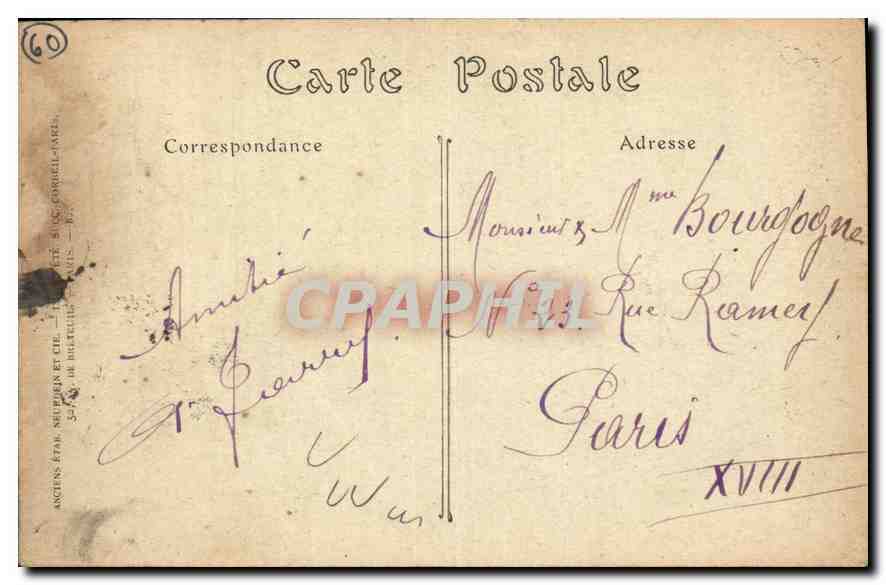 60
Carte Postale
Correspondance
Adresse
Monsieur & Mme Bourgogne
No 23. Rue Ramey.
Paris
XVIII
Amitié
CPAPHIL
ANCIENS ÉTAB. NEURDEIN ET CIE. — SUCC. CORBEIL-PARIS.
DE BRETEUIL, PARIS. —